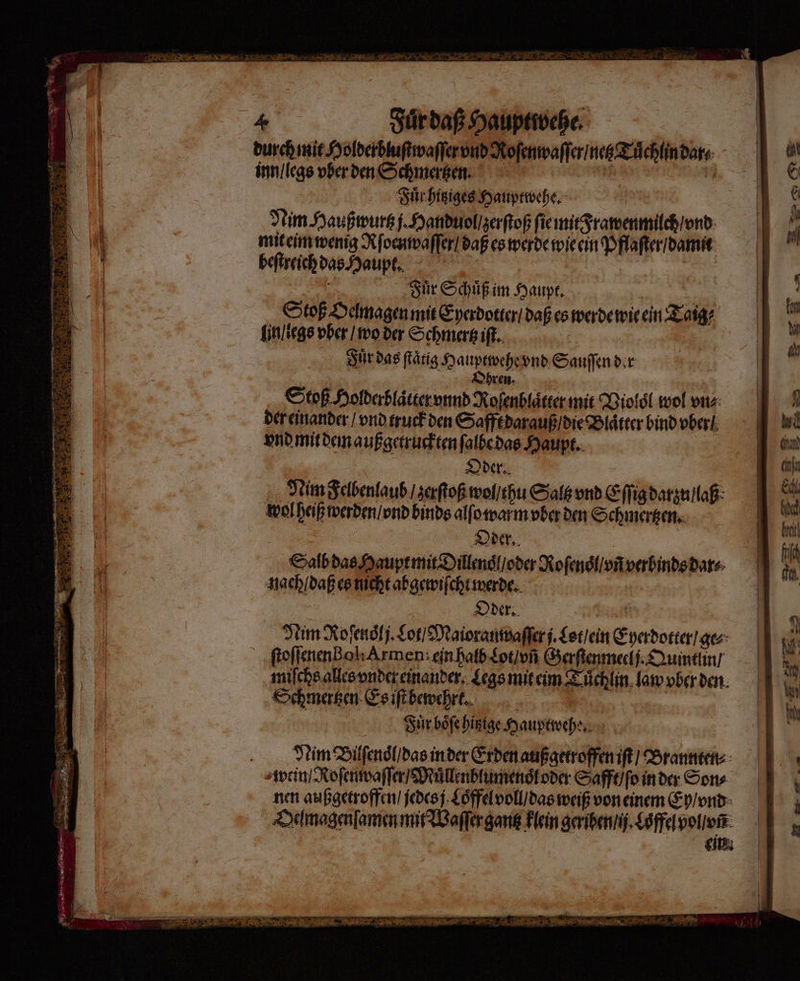 4 Für daß Hauptwehe.
durch mit Holderbluſtwaſſer vnd Roſenwaſſer/netz Tüchlin dar⸗
inn/legs vber den Schmertzen.
Für hitziges Hauptwehe.
Nim Haußwurtz j. Handuol/zerſtoß ſie mit Frawenmilch/vnd
mit eim wenig Rſoenwaſſer/ daß es werde wie ein Pflaſter/damit
beſtreich das Haupt.
Für Schüß im Haupt.
Stoß Oelmagen mit Eyerdotter/ daß es werde wie ein Taig⸗
lin/legs vber / wo der Schmertz iſt.
Für das ſtätig Hauptwehe vnd Sauſſen der
Ohren.
Stoß Holderblätter vnnd Roſenblätter mit Violöl wol vn⸗
der einander / vnd truck den Safft darauß/die Blätter bind vber/
vnd mit dem außgetruckten ſalbe das Haupt.
Oder.
Nim Felbenlaub / zerſtoß wol/thu Saltz vnd Eſſig darzu/laß
wol heiß werden/vnd binds alſo warm vber den Schmertzen.
Oder.
Salb das Haupt mit Dillenöl/oder Roſenöl/vñ verbinds dar⸗
nach/daß es nicht abgewiſcht werde.
Oder.
Nim Roſenöl j. Lot/Maioranwaſſer j. Lot/ein Eyerdotter/ ge⸗
ſtoſſenen Bol. Armen: ein halb Lot/vñ Gerſtenmeel j. Quintlin/
miſchs alles vnder einander. Legs mit eim Tüchlin law vber den
Schmertzen Es iſt bewehrt.
Für böſe hitzige Hauptwehe.
Nim Bilſenöl/das in der Erden außgetroffen iſt / Brannten⸗
wein/Roſenwaſſer/Müllenblumenöl oder Safft/ſo in der Son⸗
nen außgetroffen/ jedes j. Löffel voll/das weiß von einem Ey/vnd
Oelmagenſamen mit Waſſer gantz klein geriben/ij. Löffel vol/vñ
ein